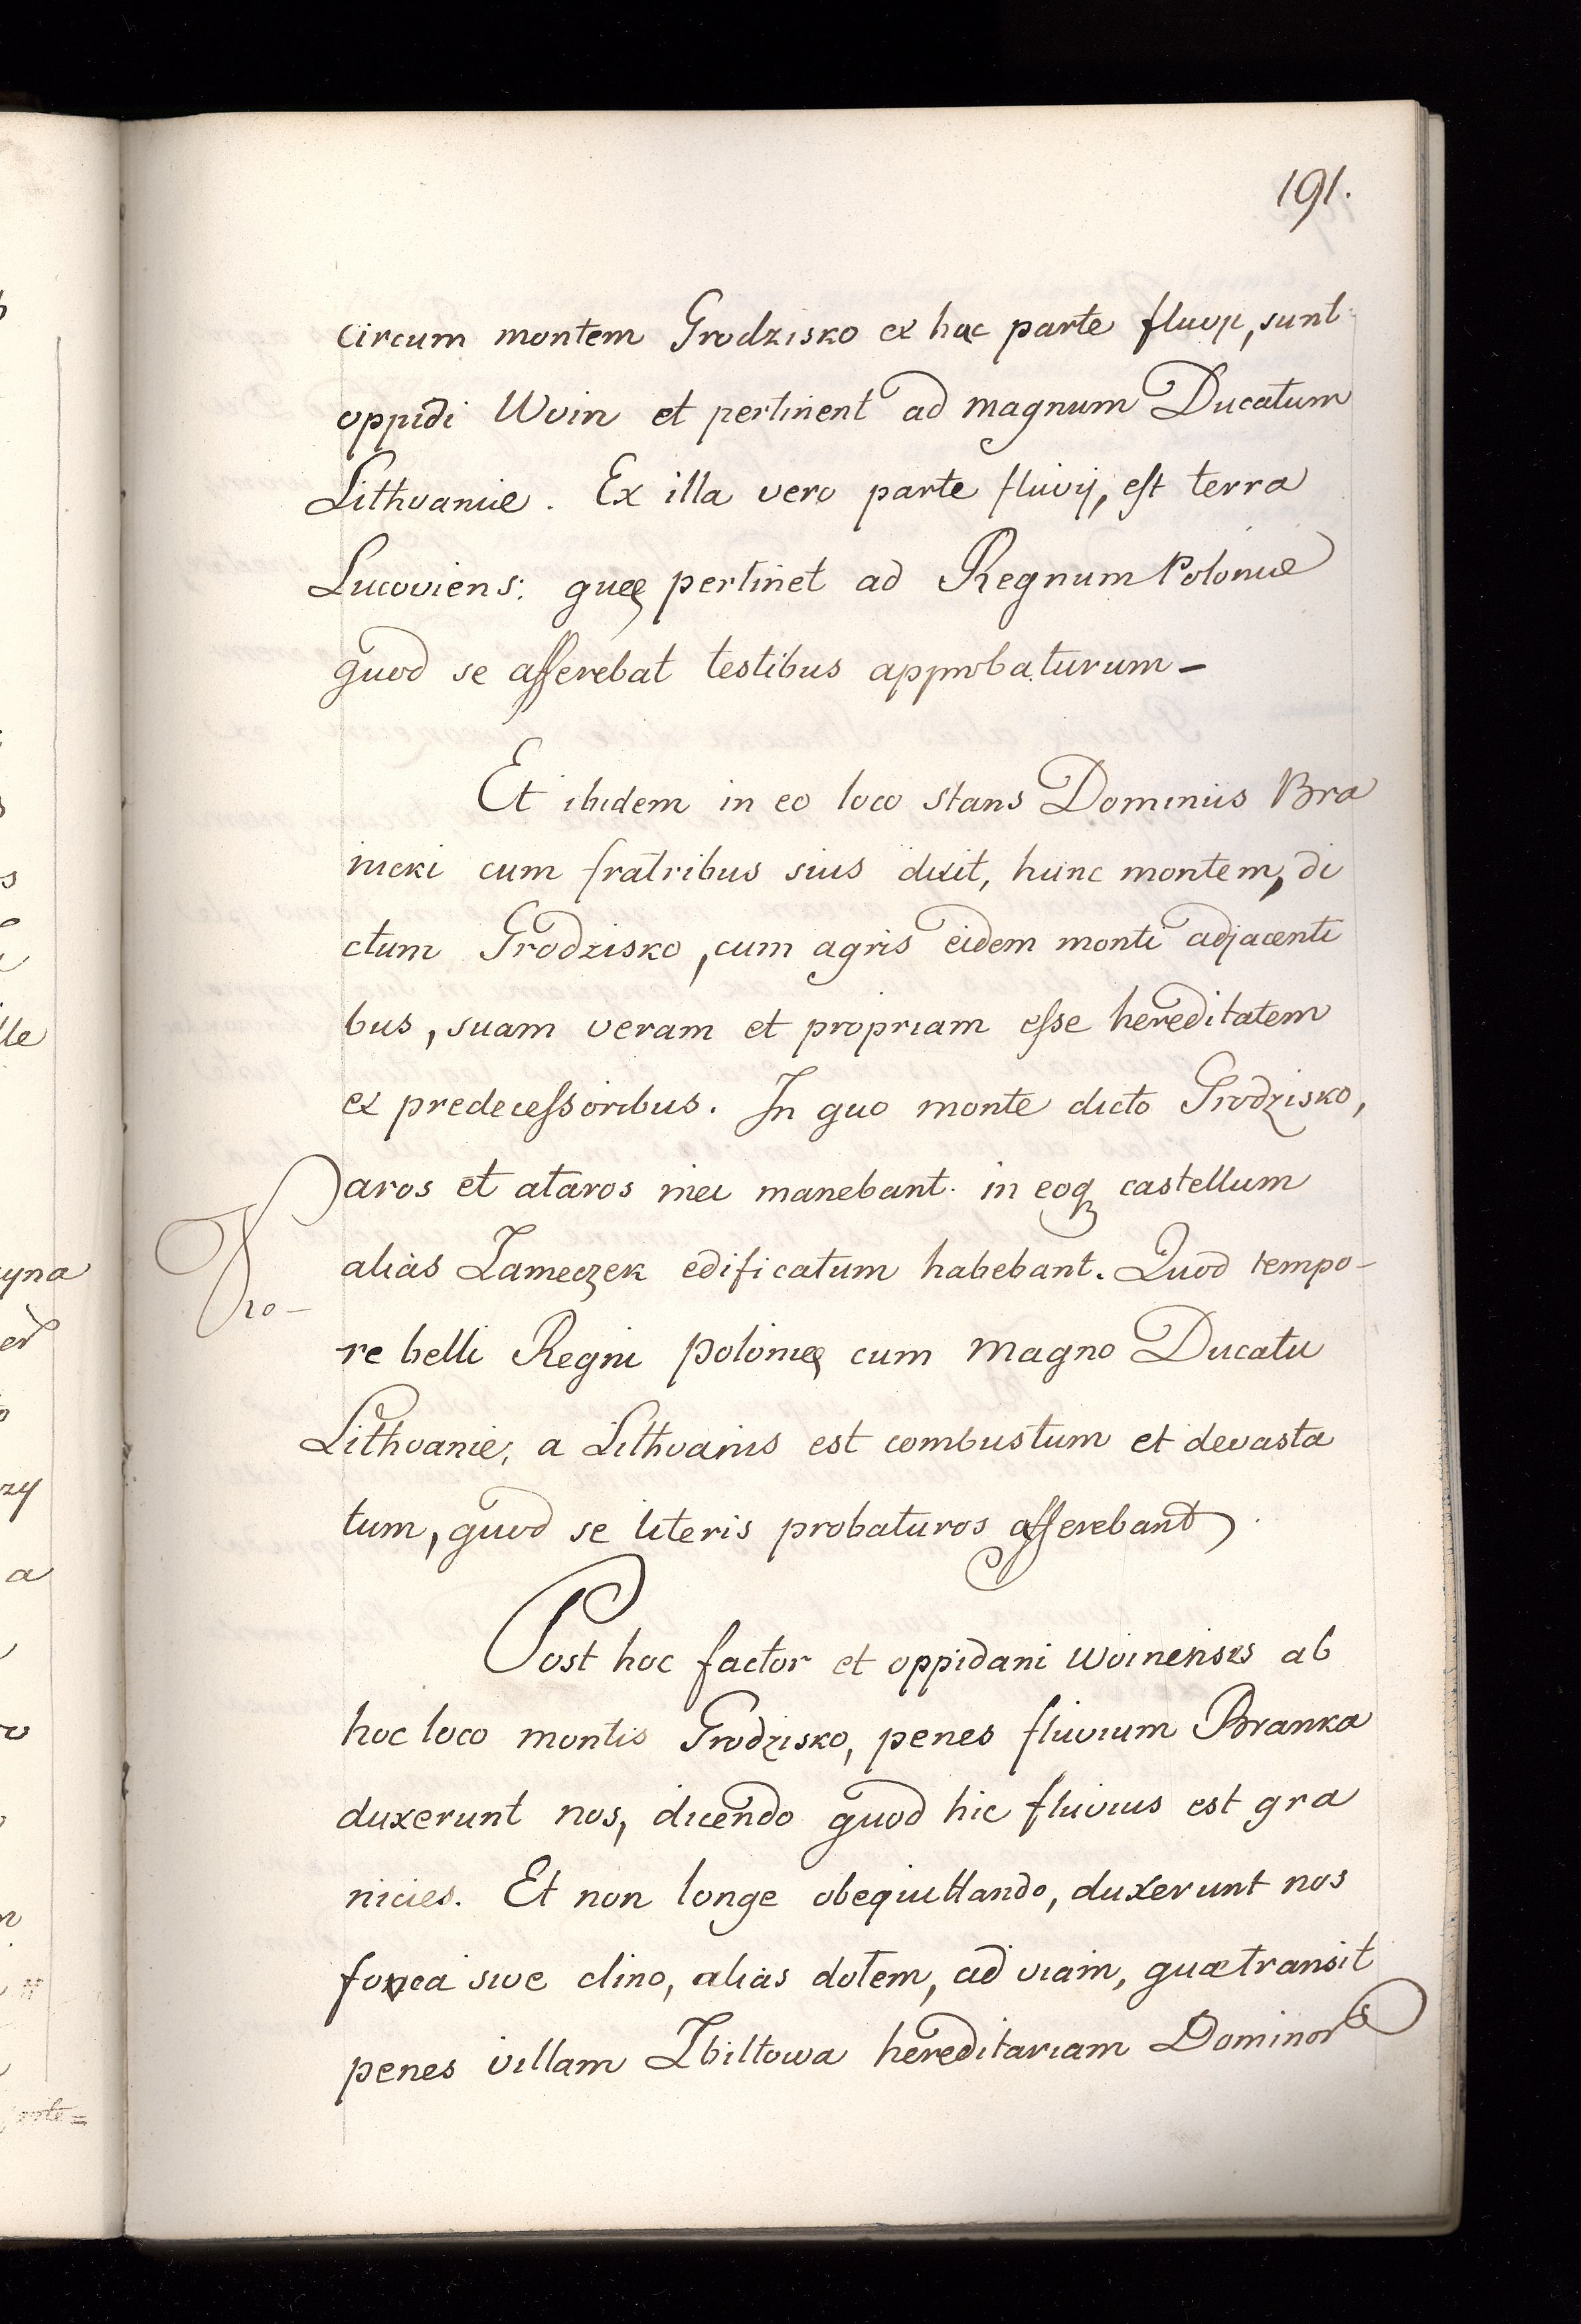 191.
circum montem Grodzisko ex hac parte fluvij, sunt
oppidi Woin et pertinent ad magnum Ducatum
Lithvaniæ. Ex illa vero parte fluvij, est terra
Lucoviens: quæ pertinet ad Regnum Poloniæ
quod se asserebat testibus approbaturum –
Et ibidem in eo loco stans Dominus Bra
nicki cum fratribus suis dixit, hunc montem, di
ctum Grodzisko, cum agris eidem monti adjacenti
bus, suam veram et propriam esse hereditatem
ex predecessoribus. In quo monte dicto Grodzisko,
aros et ataros mei manebant. in eoq castellum
alias Zameczek edificatum habebant. Quod tempo-
re belli Regni poloniæ cum magno Ducatu
Lithvanie, a Lithvanis est combustum et devasta
tum, quod se literis probaturos asserebant
Post hoc factor et oppidani woinenses ab
hoc loco montis Grodzisko, penes fluvium Branka
duxerunt nos, dicendo quod hic fluvius est gra
nicies. Et non longe obequittando, duxerunt nos
fovea sive clino, alias dotem, ad viam, quæ transit
penes villam Zbiltowa hereditariam Dominor